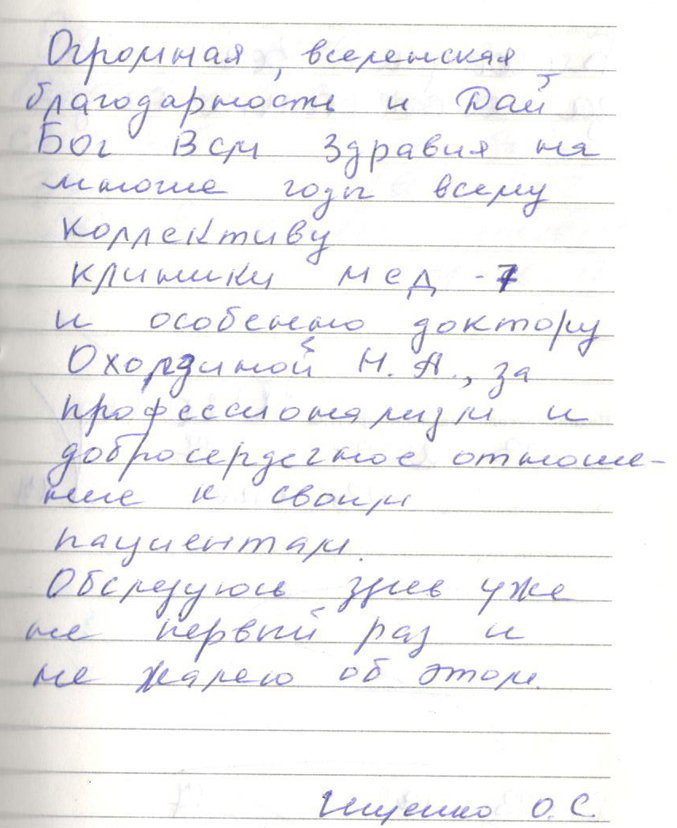 Огромная, вселенская
благодарность и Дай
Бог Всм Здравия на
многие годы всему
коллективу
клиники мед - 7
и особенно доктору
Охордзиной Н. А., за
профессионализм и
добросердечное отноше-
ние к своим
пациентам.
Обследуюсь здесь уже
не первый раз и
не жалею об этом.
Ищенко О. С.